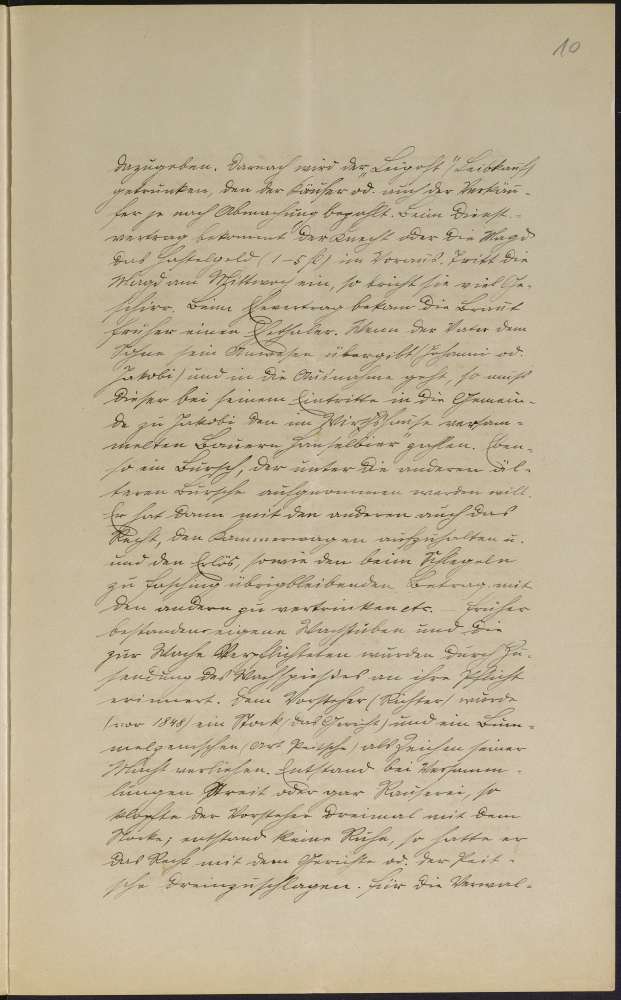 10
dazugeben. Darnach wird der „Leipost" (Leiokauf)
getrunken, den der Käufer od. auch der Verkäu-
fer je nach Abmachung bezahlt. Beim Dienst-
vertrag bekommt der Knecht oder die Magd
das Haftelgeld (1-5 fl) im Voraus. Tritt die
Magd am Mittwoch ein, so bricht sie viel Ge-
schirr. Beim Ehevertrag bekam die Braut
früher einen Ehethaler. Wenn der Vater dem
Sohne sein Anwesen übergibt (Johanni od.
Jakobi) und in die Ausnahme geht, so muß
dieser bei seinem Eintritte in die Gemein-
de zu Jakobi den im Wirtshause versam-
melten Bauern „Hanselbier" zahlen. Eben-
so ein Bursch, der unter die anderen äl-
teren Bursche aufgenommen werden will.
Er hat dann mit den anderen auch das
Recht, den Kammerwagen aufzuhalten u.
und den Erlös, sowie den beim Schlegeln
zu Fasching übrigbleibenden Betrag mit
den andern zu vertrinken etc. – Früher
bestanden eigene Wachstuben und die
zur Wache Verpflichteten wurden durch Zu-
sendung des Wachspießes an ihre Pflicht
erinnert. Dem Vorsteher (Richter) wurde
(vor 1848) ein Stock (das Gericht) und ein
(Art Peitsche) als Zeichen seiner
Macht verliehen. Entstand bei Versamm-
lungen Streit oder gar Rauferei, so
klopfte der Vorsteher dreimal mit dem
Stocke; entstand keine Ruhe, so hatte er
das Recht mit dem Gerichte od. der Peit-
sche dreinzuschlagen. Für die Verwal-